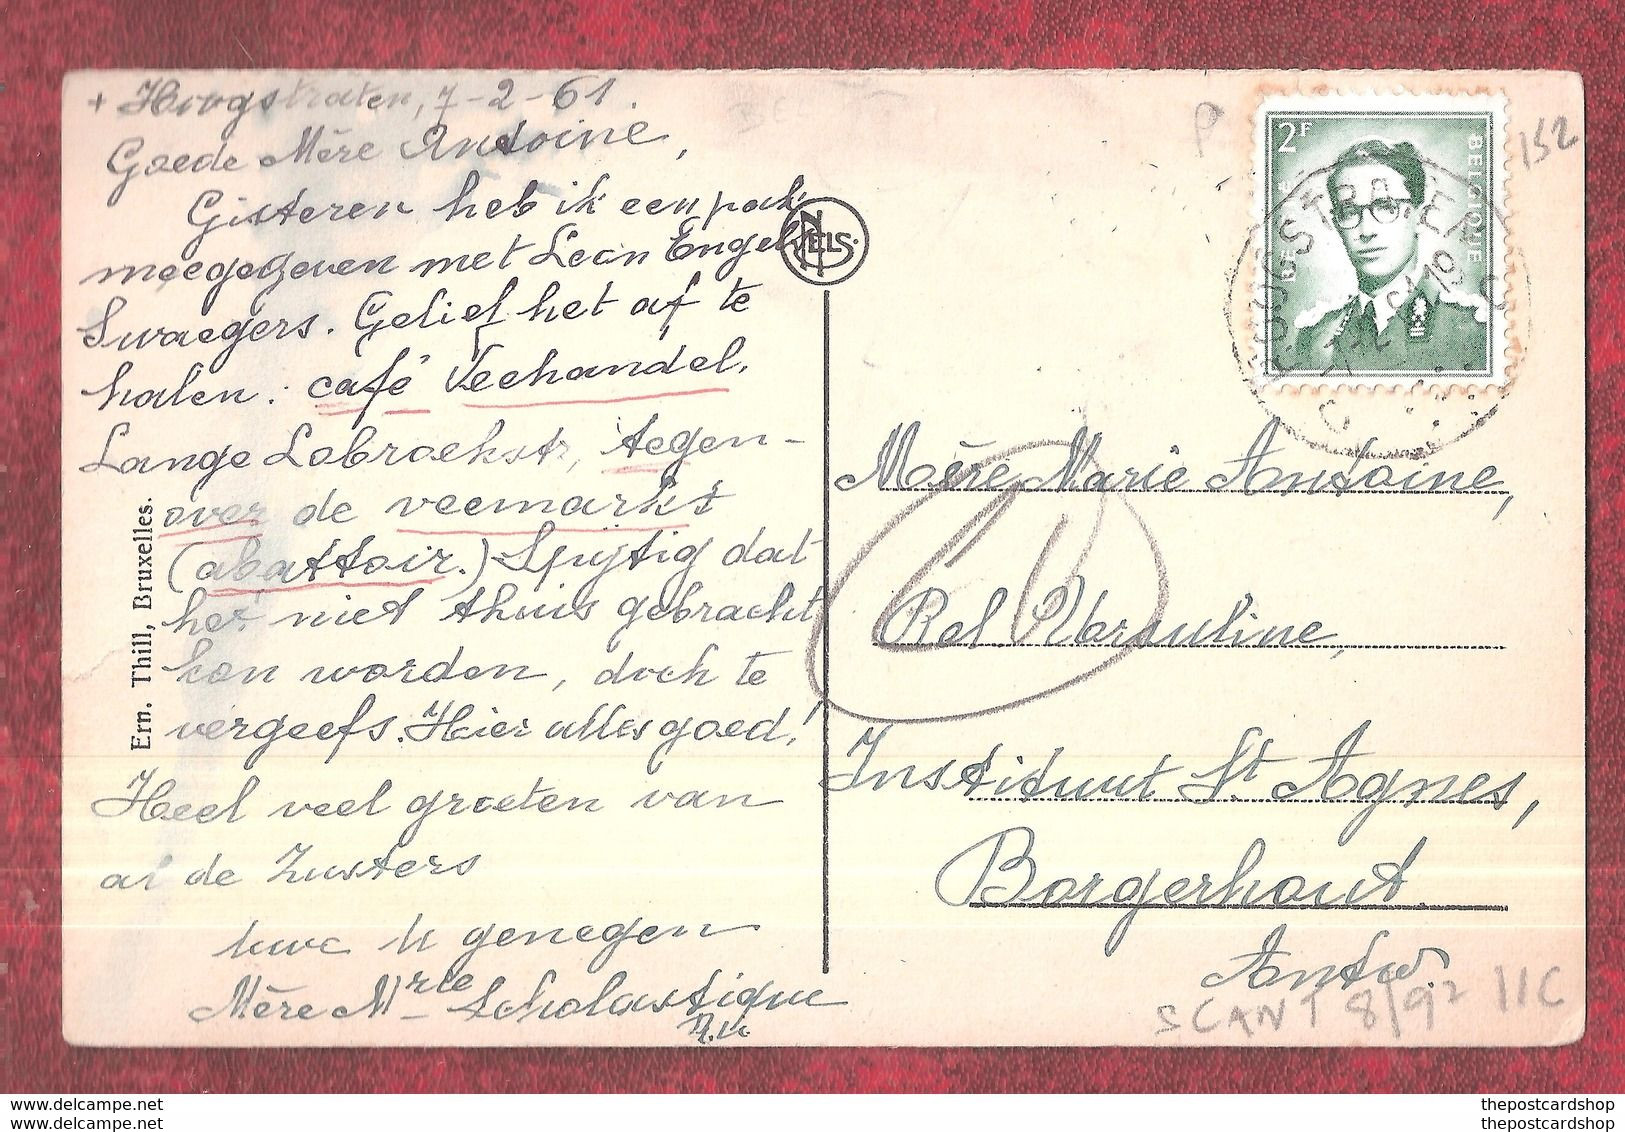 + Hoogstraten, 7-2-61.
Goede Mère Antoine,
Gisteren heb ik een pak
meegegeven met Leon Engels
Swaegers. Gelief het af te
halen: café Veehandel.
Lange Lobroekstr, tegen-
over de veemarkt
(abattoir.) Spijtig dat
het niet thuis gebracht
kon worden, doch te
vergeefs. Hier alles goed!
Heel veel groeten van
al de Zusters
uwe U genegen
Mère Mrie Scholastique
NELS
Ern. Thill, Bruxelles.
P
152
2F
BELGIQUE
HOOGSTRATEN
Mère Marie Antoine,
Rel Ursuline,
Instituut St. Agnes,
Borgerhout
Antw.
SCANT 8/92 11C
www.delcampe.net
www.delcampe.net
thepostcardshop
thepostcardshop